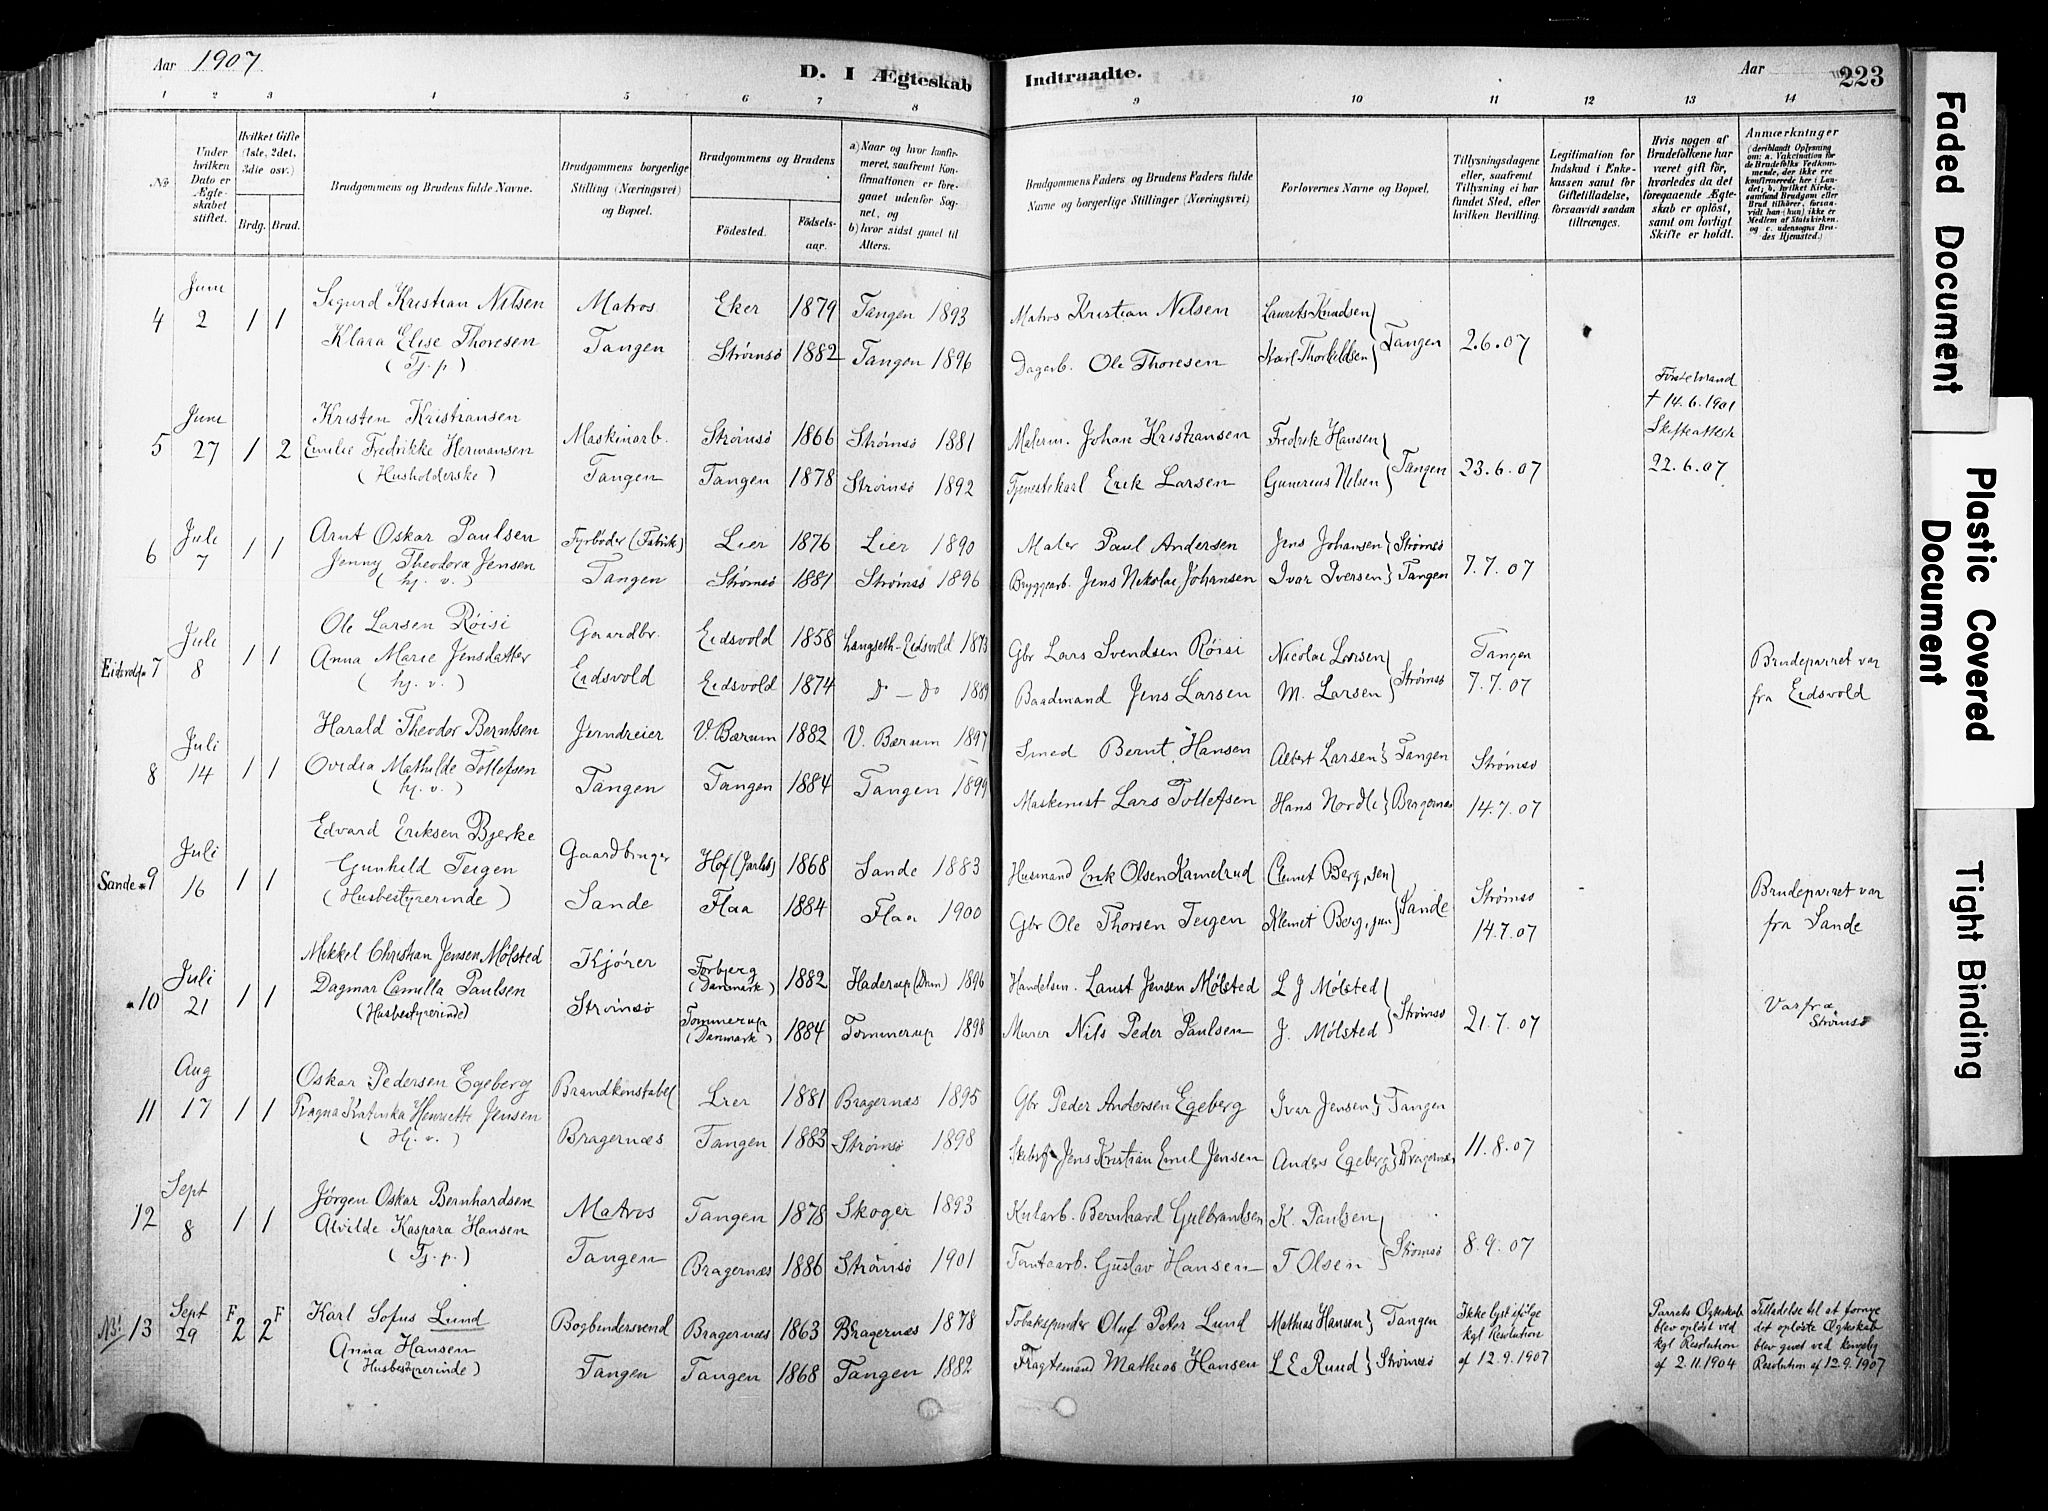 Aar 1907.
D. I Ægteskab Indtraadte.
Aar
223
1 2 3 4 5 6 7 8 9 10 11 12 13 14
No
Under hvilken Dato er Ægteskabet stiftet.
Hvilket Gifte (1ste, 2det, 3die osv.)
Brdg. Brud.
Brudgommens og Brudens fulde Navne.
Brudgommens borgerlige Stilling (Næringsvei) og Bopæl.
Brudgommens og Brudens
Födested. Födsels-aar.
a) Naar og hvor konfirmeret, saafremt Konfirmationen er foregaaet udenfor Sognet, og
b) hvor sidst gaaet til Alters.
Brudgommens Faders og Brudens Faders fulde Navne og borgerlige Stillinger (Næringsvei)
Forlovernes Navne og Bopæl.
Tillysningsdagene eller, saafremt Tillysning ei har fundet Sted, efter hvilken Bevilling.
Legitimation for Indskud i Enkekassen samt for Giftetilladelse, forsaavidt saadan tiltrænges.
Hvis nogen af Brudefolkene har været gift för, hvorledes da det foregaaende Ægteskab er oplöst, samt om lovligt Skifte er holdt.
Anmærkninger (deriblandt Oplysning om: a. Vakcination for de Brudefolks Vedkommende, der ikke ere konfirmerede her i Landet; b. hvilket Kirkesamfund Brudgom eller Brud tilhörer, forsaavidt han (hun) ikke er Medlem af Statskirken, og c. udensogns Brudes Hjemsted.)
4 Juni 2 1 1 Sigurd Kristian Nilsen Matros Eker 1879 Tangen 1893 Matros Kristian Nilsen Laurits Knudsen
Klara Elise Thoresen (Tj. p) Tangen Strømsø 1882 Tangen 1896 Dagarb. Ole Thoresen Karl Thorkildsen Tangen 2.6.07
5 Juni 27 1 2 Kristen Kristiansen Maskinarb. Strømsø 1866 Strømsø 1881 Malerm. Johan Kristiansen Fredrik Hansen
Emilie Fredrikke Hermansen (Husholderske) Tangen Tangen 1878 Strømsø 1892 Tjenestekarl Erik Larsen Gunerius Nilsen Tangen 23.6.07
Første mand † 14.6.1901 Skifteattest 22.6.07
6 Juli 7 1 1 Arnt Oskar Paulsen Fyrbøder (Fabrik) Lier 1876 Lier 1890 Maler Paul Andersen Jens Johansen Strømsø
Jenny Theodora Jensen (hj. v.) Tangen Strømsø 1881 Strømsø 1896 Bryggearb. Jens Nikolai Johansen Ivar Iversen Tangen 7.7.07
7 Juli 8 1 1 Ole Larsen Røisi Gaardbr. Eidsvold 1858 Langseth-Eidsvold 1873 Gbr Lars Svendsen Røisi Nicolai Larsen Tangen
Anna Marie Jensdatter (hj. v.) Eidsvold Eidsvold 1874 do - do 1889 Baadmand Jens Larsen M. Larsen Strømsø 7.7.07
Brudeparret var fra Eidsvold
8 Juli 14 1 1 Harald Theodor Berntsen Jerndreier V. Bærum 1882 V. Bærum 1897 Smed Bernt Hansen Albert Larsen Tangen Strømsø
Ovidia Mathilde Tollefsen (hj. v.) Tangen Tangen 1884 Tangen 1899 Maskinist Lars Tollefsen Hans Nordli Bragernæs 14.7.07
Sande 9 Juli 16 1 1 Edvard Eriksen Bjerke Gaardbruger Hof (Jarlsb) 1868 Sande 1883 Husmand Erik Olsen Kamelrud Clemet Berg, sen Strømsø
Gunhild Teigen (Husbestyrerinde) Sande Flaa 1884 Flaa 1900 Gbr Ole Thorsen Teigen Klemet Berg, jun Sande 14.7.07
Brudeparret var fra Sande
10 Juli 21 1 1 Mikkel Christian Jensen Mølsted Kjører (Danmark) 1882 Haderup (Dnm) 1896 Handelsm. Laust Jensen Mølsted L J Mølsted
Dagmar Camilla Paulsen (Husbestyrerinde) Strømsø Tommerup (Danmark) 1884 Tommerup 1898 Murer Nils Peder Paulsen J. Mølsted Strømsø 21.7.07
Var fra Strømsø
11 Aug 17 1 1 Oskar Pedersen Egeberg Brandkonstabel Lier 1881 Bragernæs 1895 Gbr Peder Andersen Egeberg Ivar Jensen Tangen
Ragna Katinka Henriette Jensen (Hj. v.) Bragernæs Tangen 1883 Strømsø 1898 Jens Kristian Emil Jensen Anders Egeberg Bragernæs 11.8.07
12 Sept 8 1 1 Jørgen Oskar Bernhardsen Matros Tangen 1878 Skoger 1893 Kularb. Bernhard Gulbrandsen K. Paulsen
Alvilde Kaspara Hansen (Tj. p.) Tangen Bragernæs 1886 Strømsø 1901 Tomtearb. Gustav Hansen T Olsen Strømsø 8.9.07
13 Sept 29 F 2 2 F Karl Sofus Lund Bogbindersvend Bragernæs 1863 Bragernæs 1878 Tobakspinder Oluf Peter Lund Mathias Hansen Tangen
Anna Hansen (Husbestyrerinde) Tangen Tangen 1868 Tangen 1882 Fragtemand Mathias Hansen L E Ruud Strømsø
Ikke lyst ifølge kgl Resolution af 12.9.1907
Parrets Ægteskab blev opløst ved kgl Resolution af 2.11.1904
Tilladelse til at fornye det opløste Ægteskab blev givet ved kongelig Resolution af 12.9.1907
Faded Document
Plastic Covered Document
Tight Binding